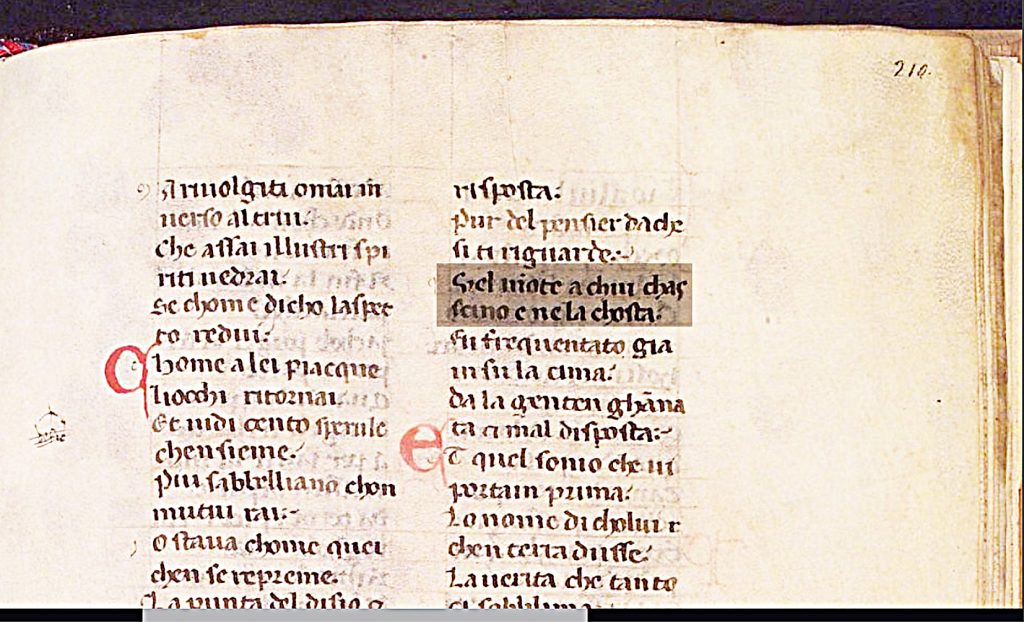 210.
A riuolgiti omai in
uerso altrui.
che assai illustri spi
riti uedrai.
Se chome dicho laspec
to redui.
Chome a lei piacque
liocchi ritornai
Et uidi cento sperule
chensieme.
Piu sabbelliano chon
mutui rai.
O staua chome quei
chen se repreme.
La punta del disio
risposta.
Pur del pensier da che
si ti riguarde.
Quel monte a chui chas
sino e ne la chosta.
Fu frequentato gia
in su la cima.
da la gente n ghāna
ta e mal disposta.
Et quel sonio che ui
portai prima.
Lo nome di cholui
chen terra dusse.
La uerita che tanto
ci sobblima